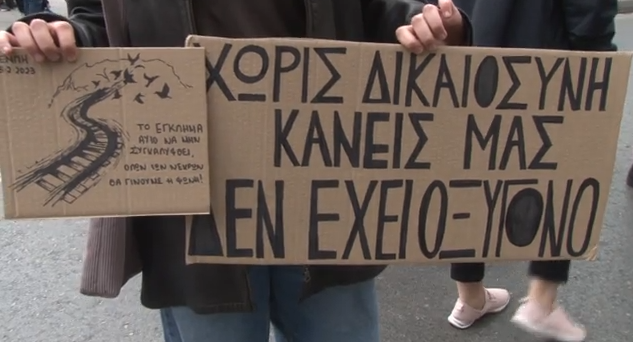 ΤΕΜΠΗ
28-2-2023
ΤΟ ΕΓΚΛΗΜΑ
ΑΥΤΟ ΝΑ ΜΗΝ
ΣΥΓΚΑΛΥΦΘΕΙ,
ΟΛΩΝ ΤΩΝ ΝΕΚΡΩΝ
ΘΑ ΓΙΝΟΥΜΕ Η ΦΩΝΗ!
ΧΩΡΙΣ ΔΙΚΑΙΟΣΥΝΗ
ΚΑΝΕΙΣ ΜΑΣ
ΔΕΝ ΕΧΕΙ ΟΞΥΓΟΝΟ